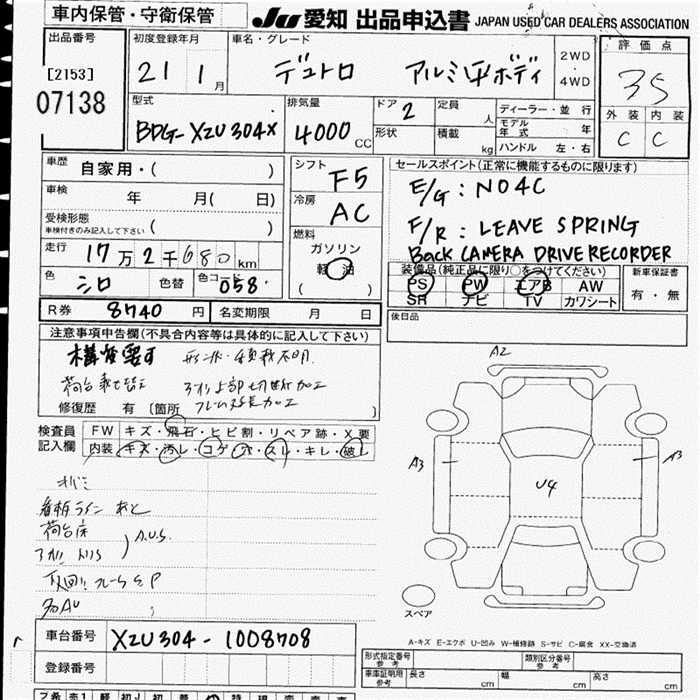 車内保管・守衛保管
JU 愛知 出品申込書 JAPAN USED CAR DEALERS ASSOCIATION
出品番号
[2153]
07138
初度登録年月
21 年 1 月
車名・グレード
デュトロ アルミ平ボディ
2WD
4WD
評価点
3.5
外装 内装
C C
型式
BDG-XZU304X
排気量
4000 CC
ドア 2
形状
定員 人
積載 kg
ディーラー・並 行
モデル年式 年
ハンドル 左・右
車歴
自家用・( )
車検
年 月( 日)
受検形態
車検付きのみ記入して下さい ( )
走行
17万2千680 km
色 シロ 色替 色コード 058
シフト F5
冷房 AC
燃料
ガソリン
軽 油
( )
セールスポイント(正常に機能するものに限ります)
E/G : N04C
F/R : LEAVE SPRING
BACK CAMERA DRIVE RECORDER
装備品(純正品に限り○をつけてください)
PS PW エアB AW
SR ナビ TV カワシート
新車保証書
有・無
後日品
R券 8740 円
名変期限 月 日
注意事項申告欄(不具合内容等は具体的に記入して下さい)
構 変 可 形状・積載不明
荷台
フレーム延長加工
修復歴 有 〔箇所 〕
検査員記入欄
FW キズ・飛石・ヒビ割・リペア跡・X要
内装 キズ・汚レ・コゲ・穴・スレ・キレ・破レ
看板ライン
荷台床
A.U.S.
下回り フレームSP
A2
A3
U4
A3
スペア
A-キズ E-エクボ U-凹み W-補修跡 S-サビ C-腐食 XX-交換済
車台番号 XZU304-1008708
登録番号
型式指定番号 参考
類別区分番号 参考
車庫証明用 参考 長さ cm 幅 cm 高さ cm